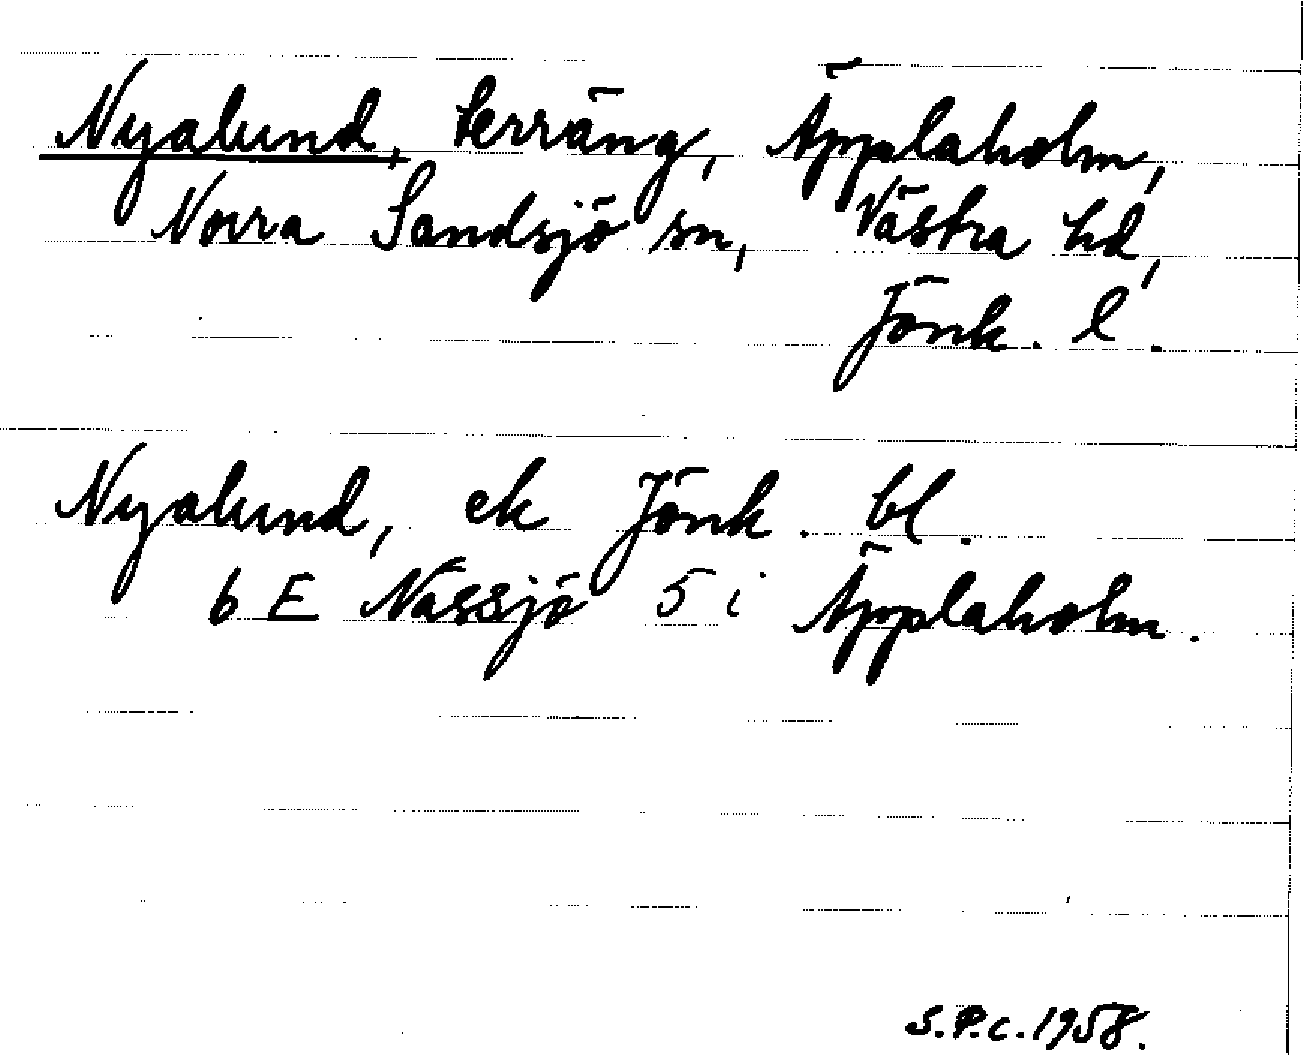 Nyalund, terräng, Äpplaholm,
Norra Sandsjö sn, Västra hd,
Jönk. l.
Nyalund, ek Jönk. bl.
6 E Nässjö 5 i Äpplaholm.
S.P.C. 1958.